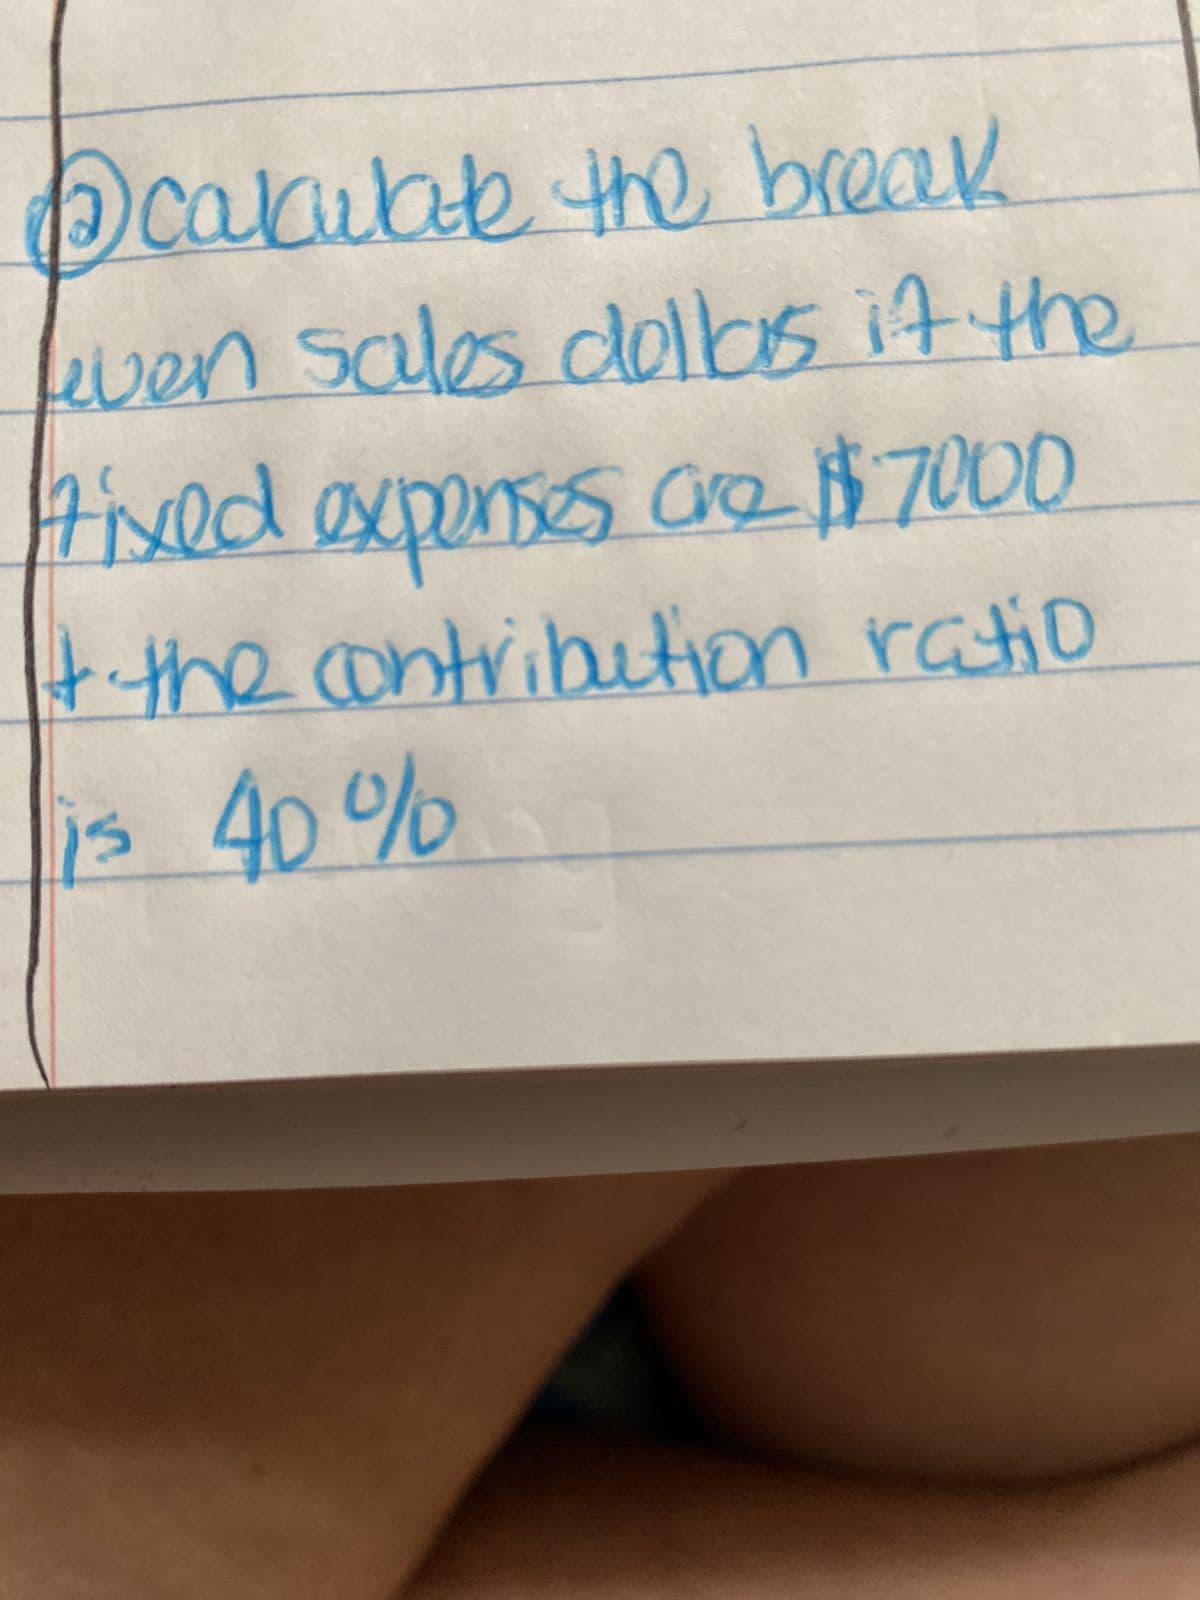 ② calculate the break
even sales dollars if the
fixed expenses are $7000
+ the contribution ratio
is 40%